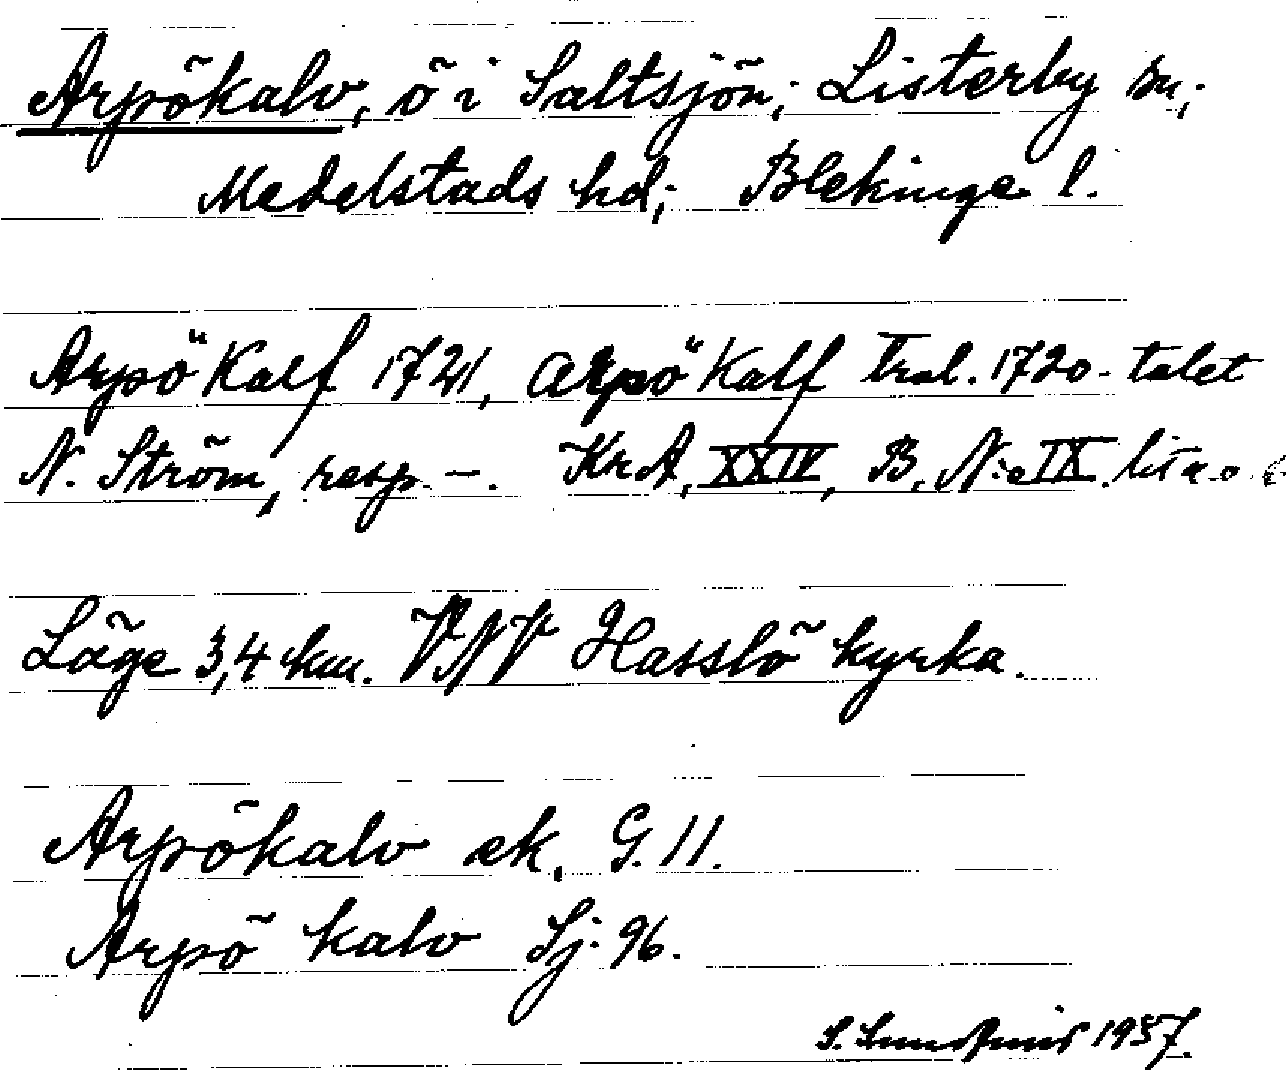 Arpökalv, ö i Saltsjön; Listerby sn;
Medelstads hd; Blekinge l.
Arpö Kalf 1721, Arpö Kalf Tral. 1720-talet
N. Ström, resp. –. KrA, XXIV, B. N:o IX. litr. o
Läge 3,4 km. VNV Hasslö kyrka.
Arpökalv ek. G. 11.
Arpö kalv Sj. 96.
S. 1957.